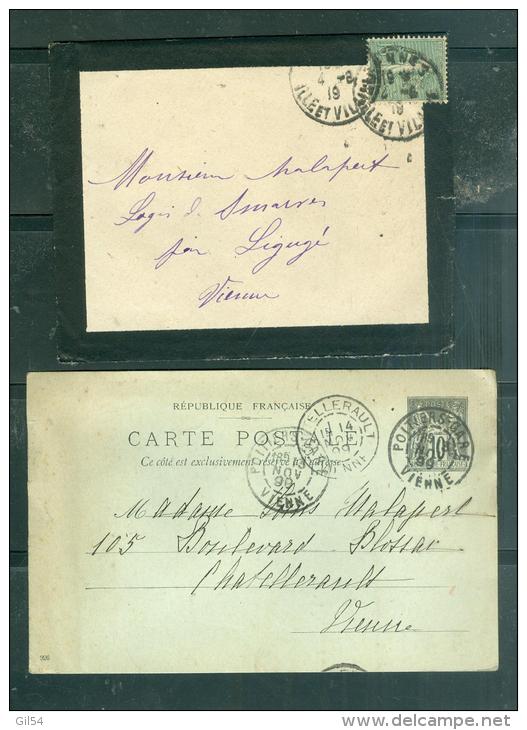 4 -8
19
ILLE ET VILAINE
Monsieur Malapert
Logis de Smarves
par Ligugé
Vienne
RÉPUBLIQUE FRANÇAISE
CARTE POSTALE
Ce côté est exclusivement réservé à l'adresse
CHATELLERAULT
14
99
NOV
99
VIENNE
POSTE
10
POITIERS-GARE
99
VIENNE
Madame Louis Malapert
105 Boulevard Blossac
Chatellerault
Vienne
Gil54
www.delcampe.net